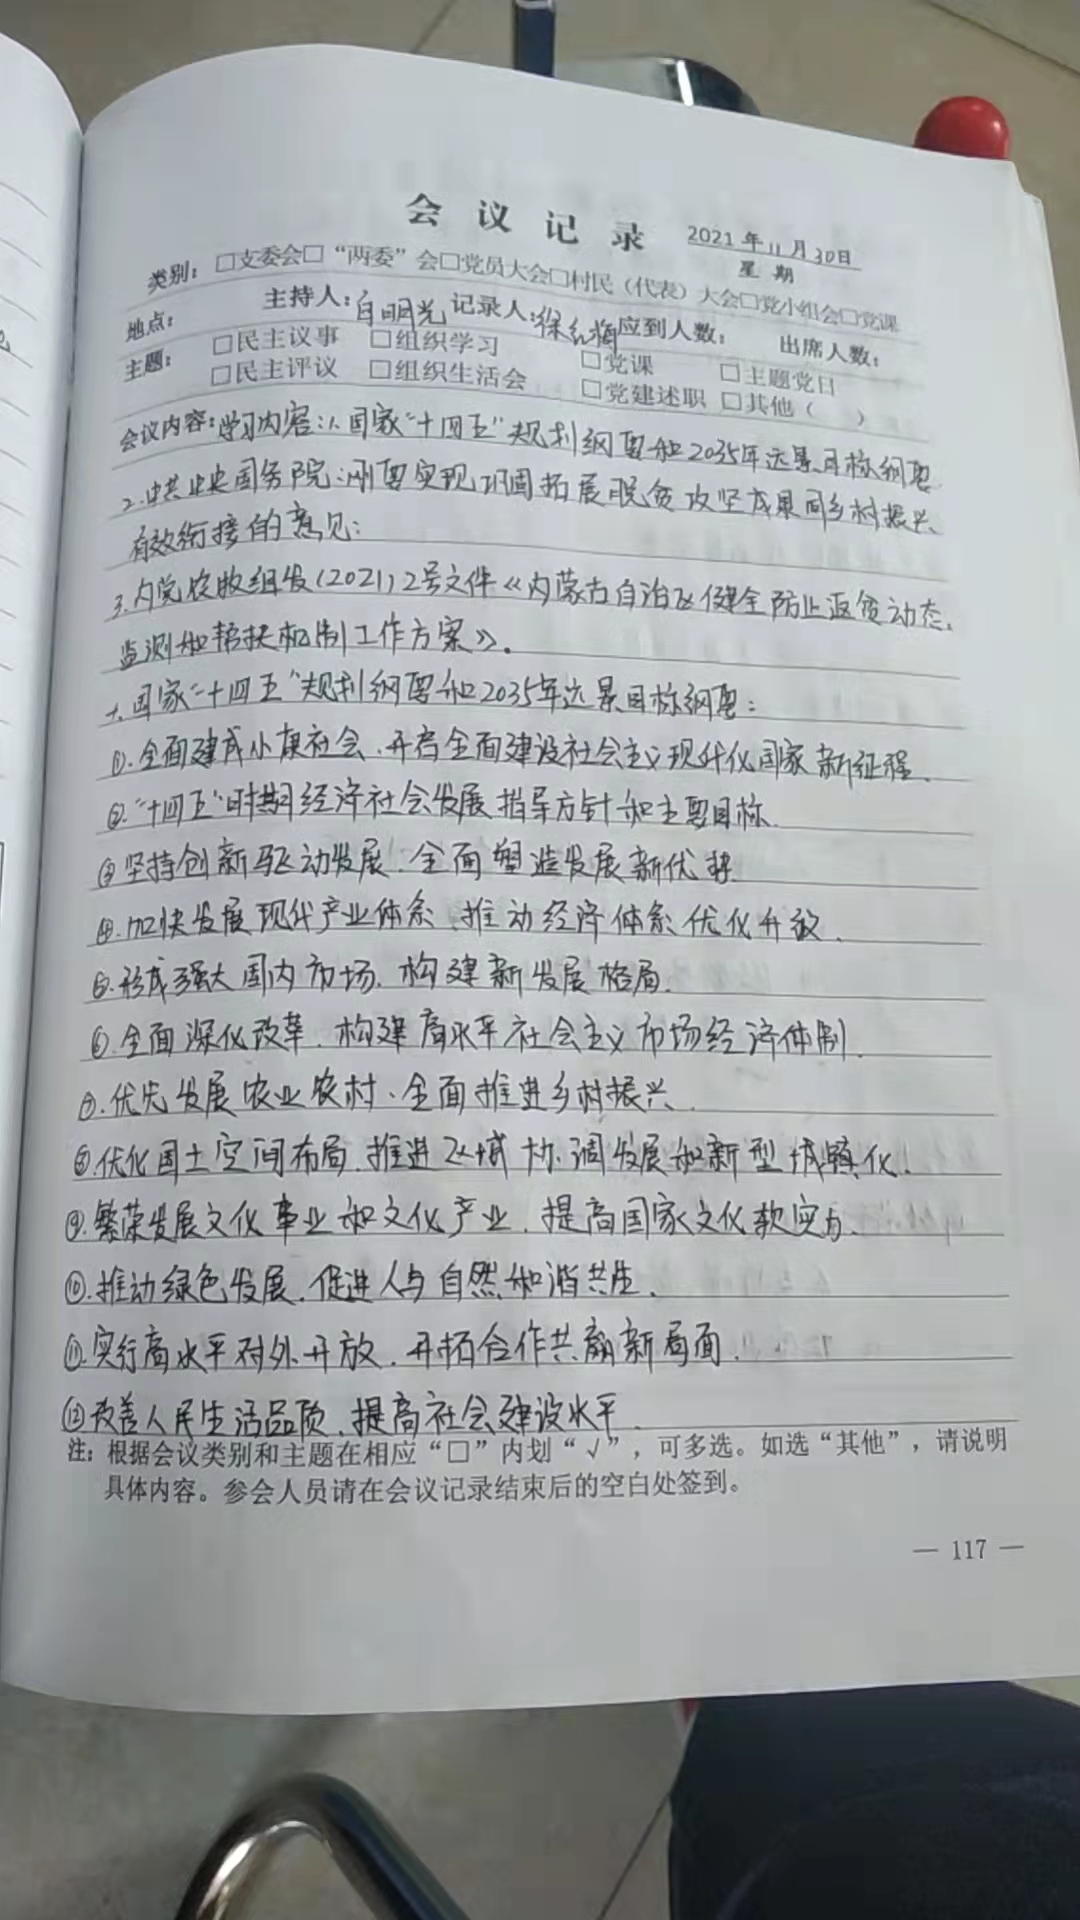 会议记录
2021年11月30日
星期
类别：□支委会□“两委”会□党员大会□村民（代表）大会□党小组会□党课
地点： 主持人：白明光 记录人：徐红梅 应到人数： 出席人数：
主题： □民主议事 □组织学习 □党课 □主题党日
□民主评议 □组织生活会 □党建述职 □其他（ ）
会议内容：学习内容：1.国家“十四五”规划纲要和2035年远景目标纲要
2.中共中央国务院：刚要实现巩固拓展脱贫攻坚成果同乡村振兴
有效衔接的意见：
3.内党农牧组发（2021）2号文件《内蒙古自治区健全防止返贫动态
监测和帮扶机制工作方案》。
一.国家“十四五”规划纲要和2035年远景目标纲要：
①.全面建成小康社会.开启全面建设社会主义现代化国家新征程.
②.“十四五”时期经济社会发展指导方针和主要目标.
③坚持创新驱动发展.全面塑造发展新优势.
④.加快发展现代产业体系.推动经济体系优化升级.
⑤.形成强大国内市场.构建新发展格局.
⑥.全面深化改革.构建高水平社会主义市场经济体制.
⑦.优先发展农业农村.全面推进乡村振兴.
⑧.优化国土空间布局.推进区域协调发展和新型城镇化.
⑨.繁荣发展文化事业和文化产业.提高国家文化软实力.
⑩.推动绿色发展.促进人与自然和谐共生.
⑪.实行高水平对外开放.开拓合作共赢新局面.
⑫改善人民生活品质.提高社会建设水平.
注：根据会议类别和主题在相应“□”内划“√”，可多选。如选“其他”，请说明
具体内容。参会人员请在会议记录结束后的空白处签到。
— 117 —